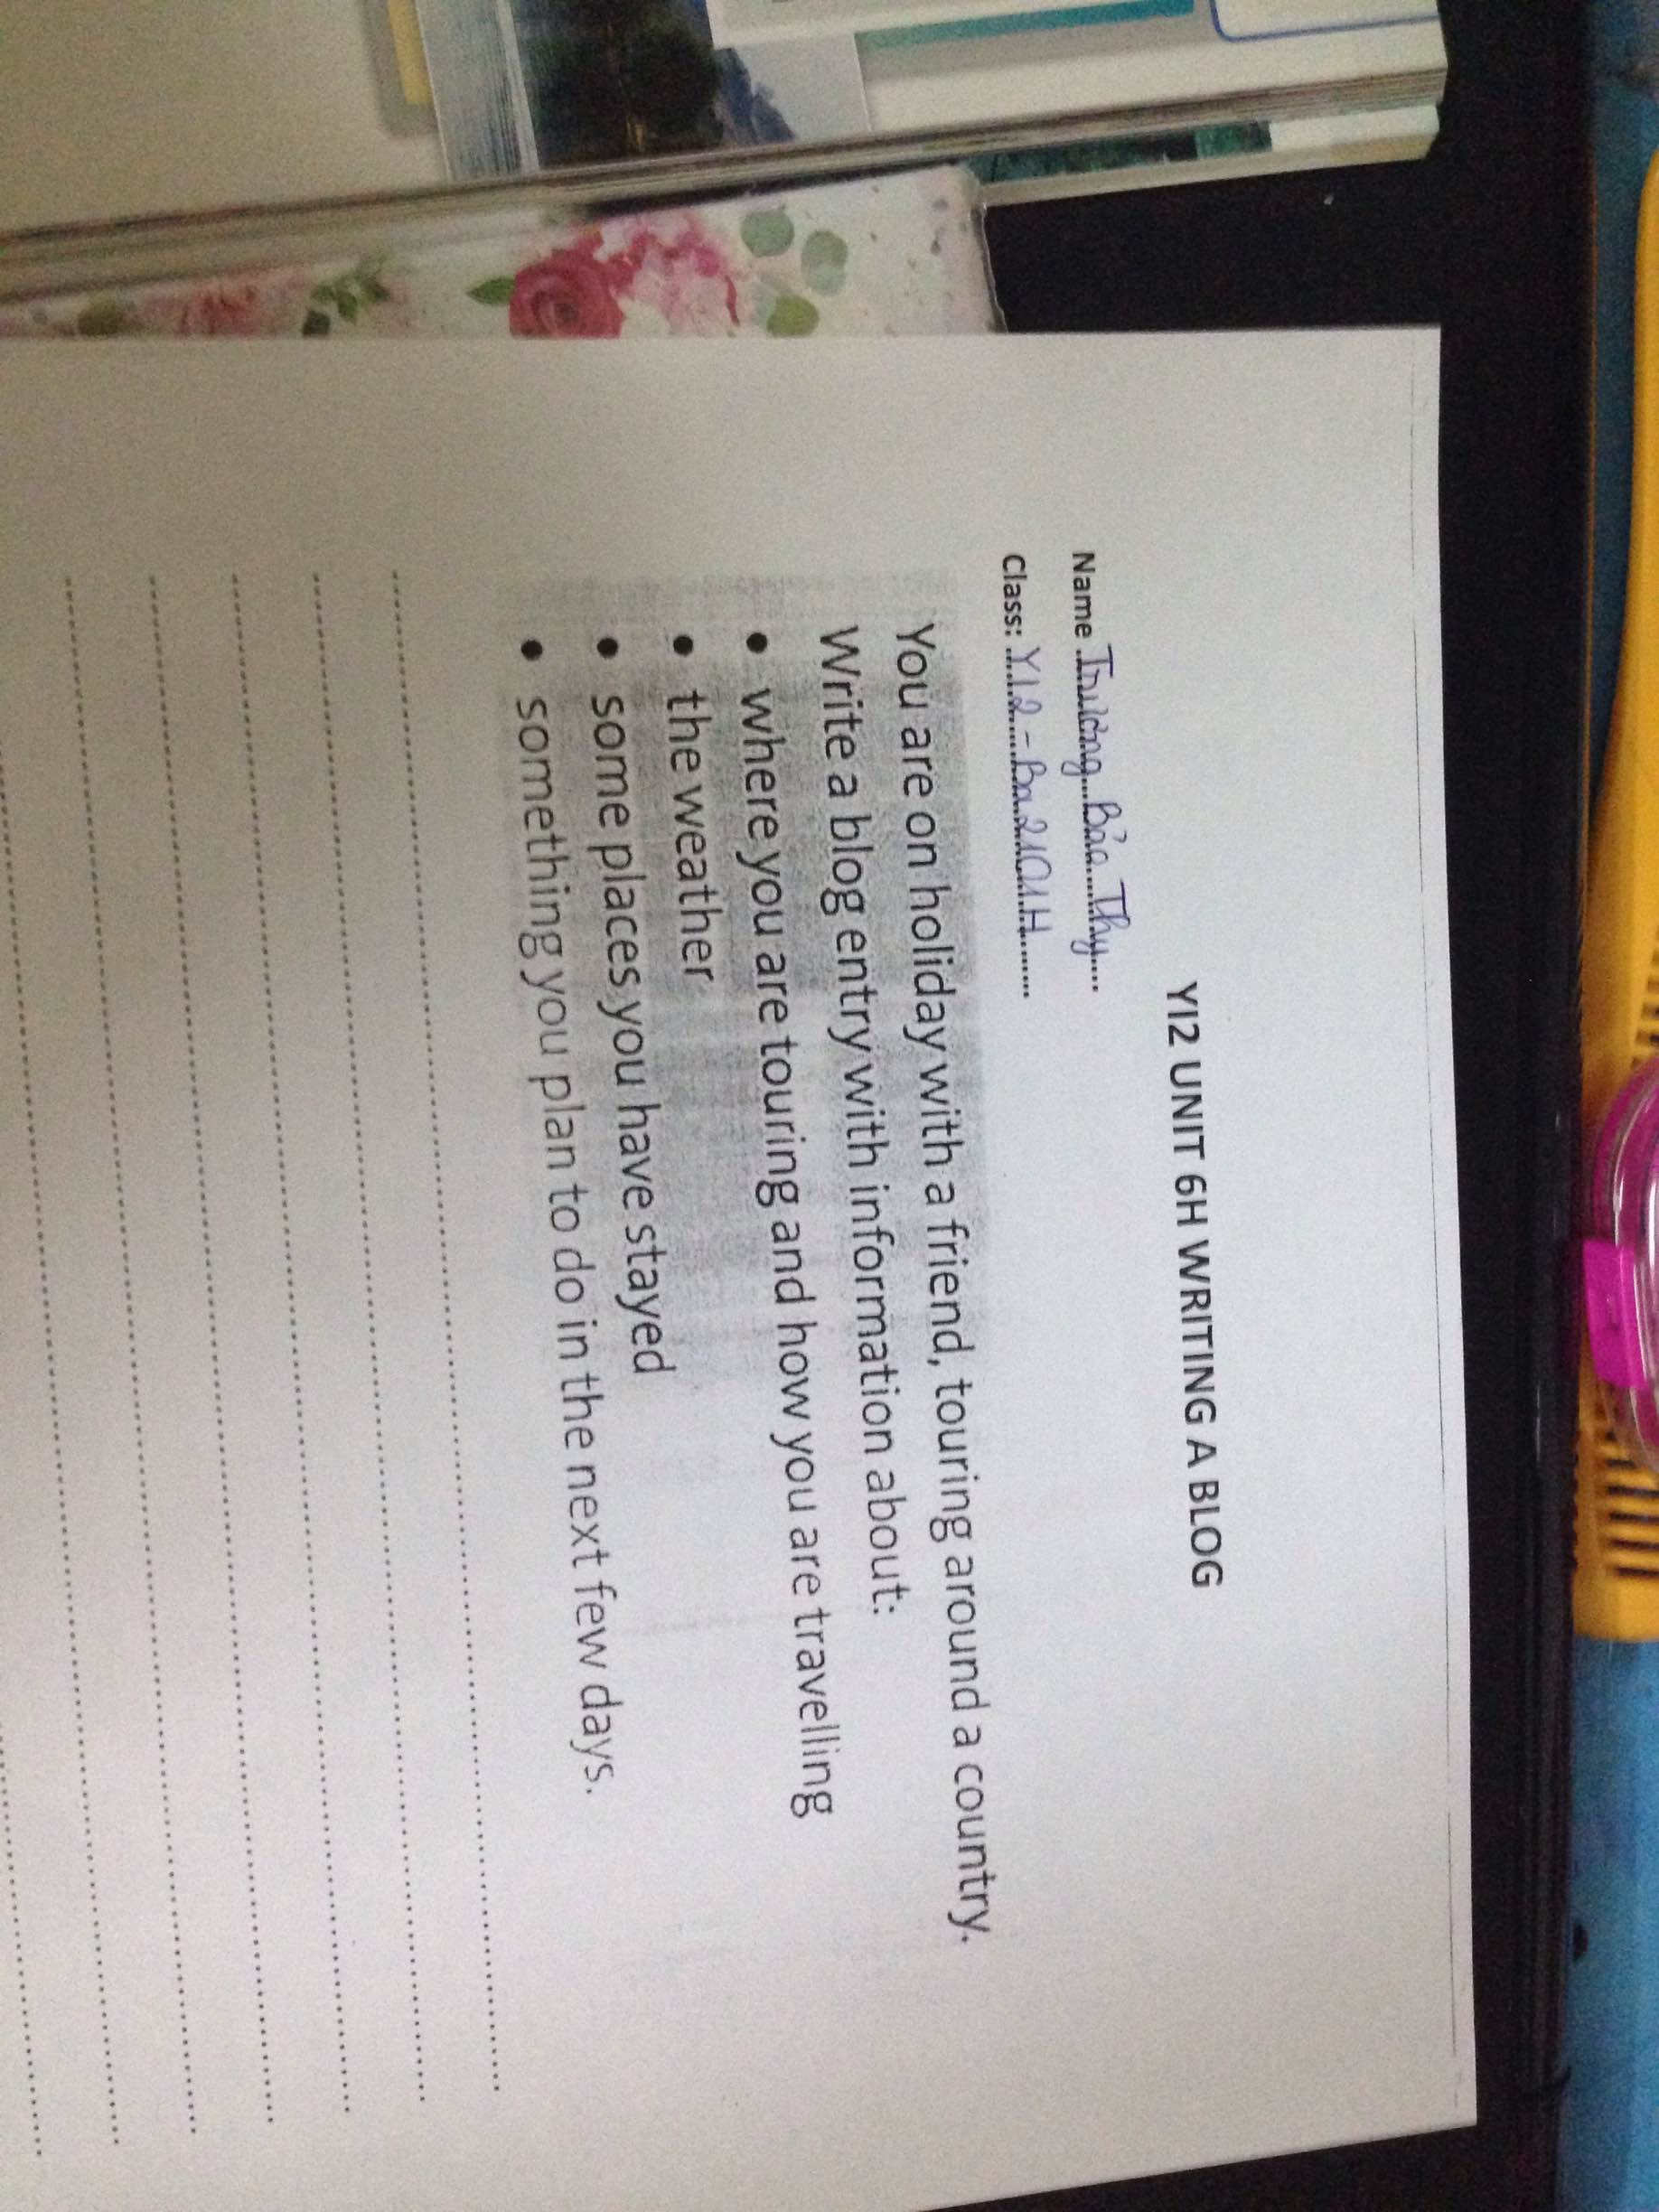 YI2 UNIT 6H WRITING A BLOG
Name Trương Bảo Thy
Class: YI2-Ba2101H
You are on holiday with a friend, touring around a country.
Write a blog entry with information about:
• where you are touring and how you are travelling
• the weather
• some places you have stayed
• something you plan to do in the next few days.